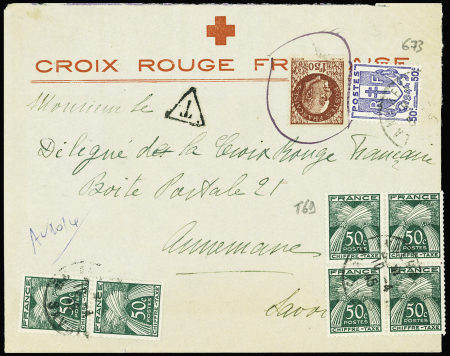 673
CROIX ROUGE FRANCAISE
1F50
POSTES
RF
50c
50c
T
Monsieur le
Délégué de la Croix Rouge Française
Boite Postale 21
T69
Annemasse
Savoie
FRANCE
50c
POSTES
CHIFFRE-TAXE
FRANCE
50c
POSTES
CHIFFRE-TAXE
FRANCE
50c
POSTES
CHIFFRE-TAXE
FRANCE
50c
POSTES
CHIFFRE-TAXE
FRANCE
50c
POSTES
CHIFFRE-TAXE
FRANCE
50c
POSTES
CHIFFRE-TAXE